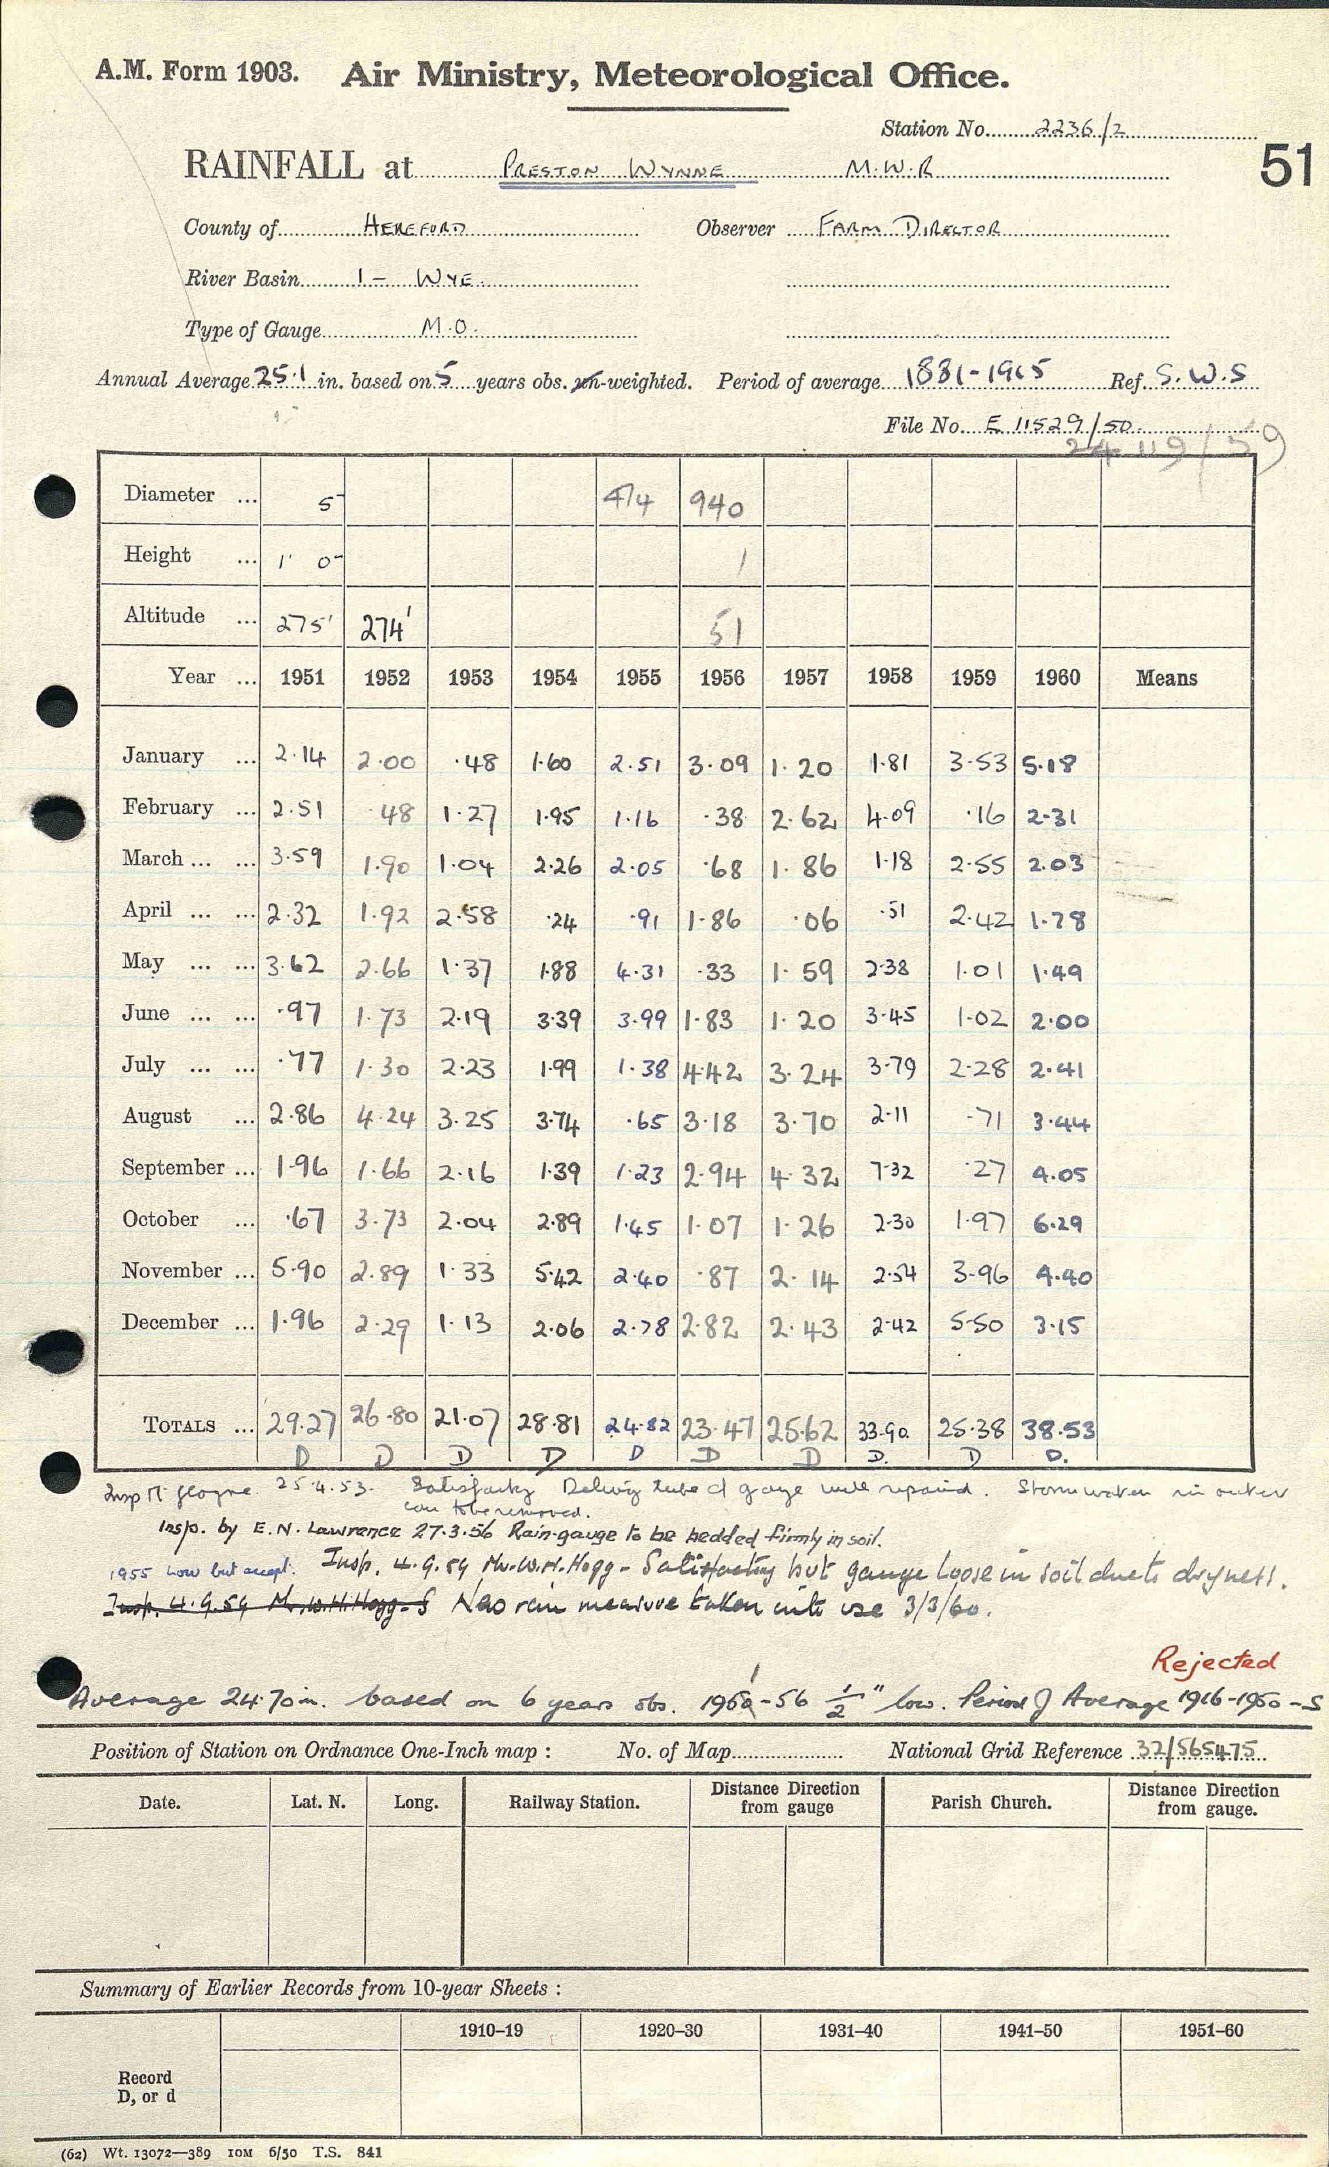 A.M. Form 1903. Air Ministry, Meteorological Office.
Station No. 2236/2
RAINFALL at PRESTON WYNNE M.W.R 51
County of HEREFORD Observer FARM DIRECTOR
River Basin 1 - WYE.
Type of Gauge M.O.
Annual Average 25.1 in. based on 5 years obs. un-weighted. Period of average 1881-1915 Ref. S.W.S
File No. E 11529/50.
24 119/59
Diameter ... 5 474 940
Height ... 1' 0" 1
Altitude ... 275' 274' 51
Year ... 1951 1952 1953 1954 1955 1956 1957 1958 1959 1960 Means
January ... 2.14 2.00 .48 1.60 2.51 3.09 1.20 1.81 3.53 5.18
February ... 2.51 .48 1.27 1.95 1.16 .38 2.62 4.09 .16 2.31
March ... ... 3.59 1.90 1.04 2.26 2.05 .68 1.86 1.18 2.55 2.03
April ... ... 2.32 1.92 2.58 .24 .91 1.86 .06 .51 2.42 1.78
May ... ... 3.62 2.66 1.37 1.88 4.31 .33 1.59 2.38 1.01 1.49
June ... ... .97 1.73 2.19 3.39 3.99 1.83 1.20 3.45 1.02 2.00
July ... ... .77 1.30 2.23 1.99 1.38 4.42 3.24 3.79 2.28 2.41
August ... 2.86 4.24 3.25 3.74 .65 3.18 3.70 2.11 .71 3.44
September ... 1.96 1.66 2.16 1.39 1.23 2.94 4.32 7.32 .27 4.05
October ... .67 3.73 2.04 2.89 1.45 1.07 1.26 2.30 1.97 6.29
November ... 5.90 2.89 1.33 5.42 2.40 .87 2.14 2.54 3.96 4.40
December ... 1.96 2.29 1.13 2.06 2.78 2.82 2.43 2.42 5.50 3.15
TOTALS ... 29.27 26.80 21.07 28.81 24.82 23.47 25.62 33.90 25.38 38.53
D D D D D D D D. D D.
Insp Mr Glogne 25.4.53. Satisfactory Delivery tube of gauge well repaired. Storm water in outer
can to be removed.
Insp. by E.N. Lawrence 27.3.56 Rain-gauge to be bedded firmly in soil.
1955 Low but accept. Insp. 4.9.59 Mr. W.H. Hogg - Satisfactory but gauge loose in soil due to dryness.
Insp. 4.9.59 Mr. W.H. Hogg - S New rain measure taken into use 3/3/60.
Rejected
Average 24.70 in. based on 6 years obs. 1951-56 1/2" low. Period of Average 1916-1950 - S
Position of Station on Ordnance One-Inch map : No. of Map National Grid Reference 32/565475
Date. Lat. N. Long. Railway Station. Distance Direction from gauge Parish Church. Distance Direction from gauge.
Summary of Earlier Records from 10-year Sheets :
1910-19 1920-30 1931-40 1941-50 1951-60
Record
D, or d
(62) Wt. 13072—389 10M 6/50 T.S. 841